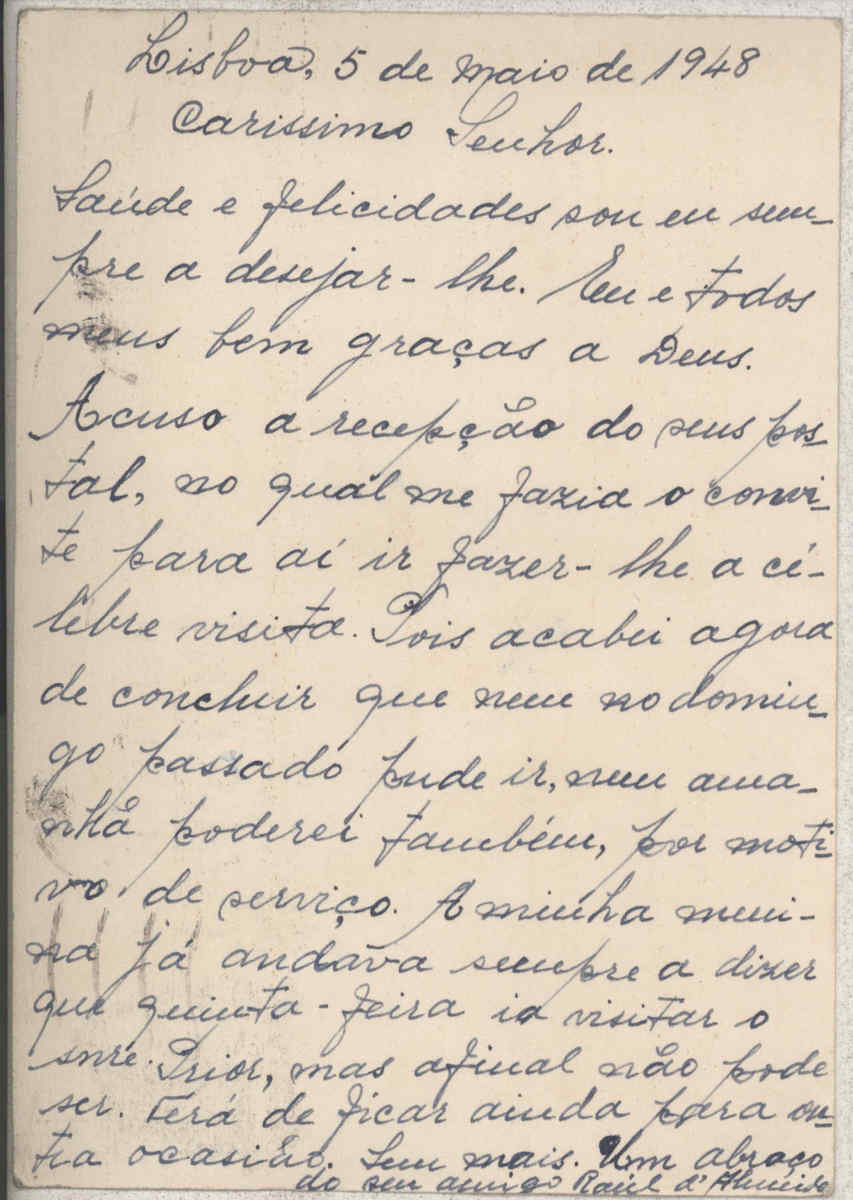 Lisboa, 5 de Maio de 1948
Carissimo Senhor.
Saúde e felicidades sou eu sem-
pre a desejar-lhe. Eu e todos
meus bem graças a Deus.
Acuso a recepção do seus pos-
tal, no qual me fazia o convi-
te para aí ir fazer-lhe a cé-
lebre visita. Pois acabei agora
de concluir que nem no domin-
go passado pude ir, nem ama-
nhã poderei também, por moti-
vo de serviço. A minha meni-
na já andava sempre a dizer
que quinta-feira ia visitar o
snre. Prior, mas afinal não pode
ser. Terá de ficar ainda para ou-
tra ocasião. Sem mais. Um abraço
do seu amigo Raúl d'Almeida